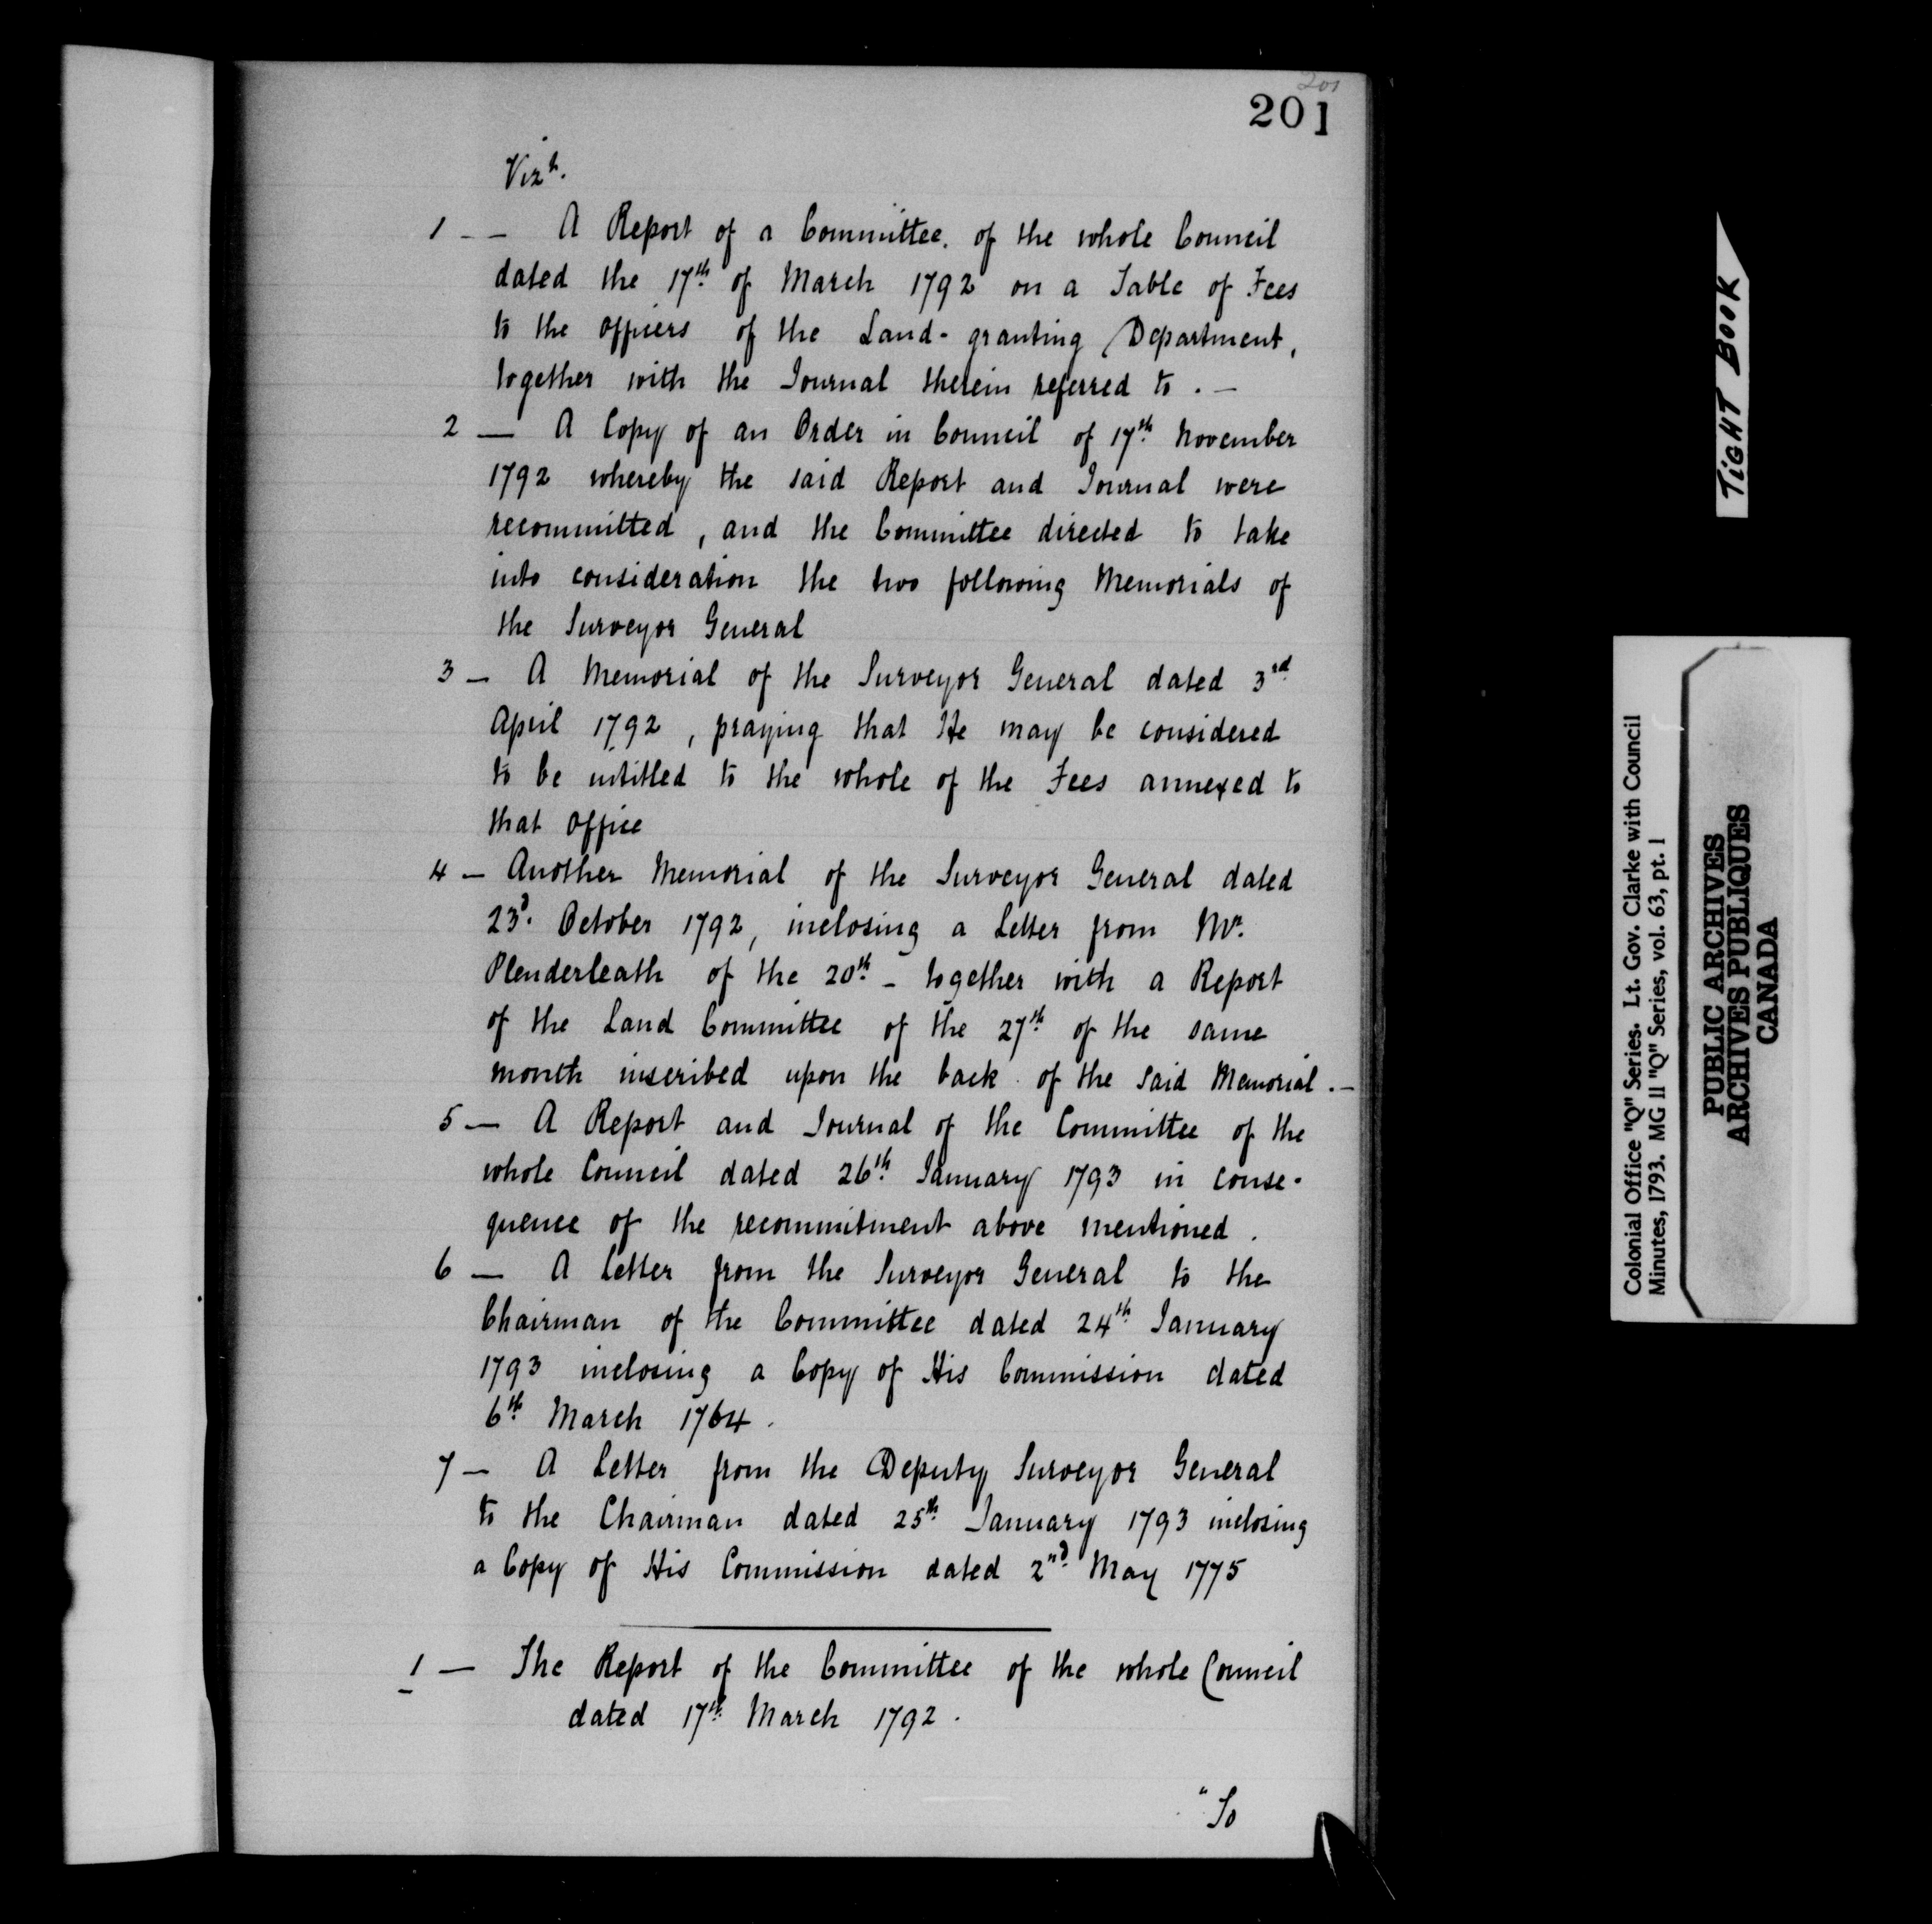 201
201
Vizt.
1 - - A Report of a Committee. of the whole Council
dated the 17th of March 1792 on a Table of Fees
to the officers of the Land-granting Department,
together with the Journal therein referred to . -
2 — A Copy of an Order in Council of 17th November
1792 whereby the said Report and Journal were
recommitted, and the Committee directed to take
into consideration the two following Memorials of
the Surveyor General
3 — A Memorial of the Surveyor General dated 3rd
April 1792, praying that He may be considered
to be intitled to the whole of the Fees annexed to
that office
4 — Another Memorial of the Surveyor General dated
23d. October 1792, inclosing a Letter from Mr.
Plenderleath of the 20th - together with a Report
of the Land Committee of the 27th of the same
month inscribed upon the back of the said Memorial. -
5 — A Report and Journal of the Committee of the
whole Council dated 26th January 1793 in conse-
quence of the recommitment above mentioned.
6 — A Letter from the Surveyor General to the
Chairman of the Committee dated 24th January
1793 inclosing a Copy of His Commission dated
6th March 1764.
7 — A Letter from the Deputy Surveyor General
to the Chairman dated 25th January 1793 inclosing
a Copy of His Commission dated 2nd May 1775
1 — The Report of the Committee of the whole Council
dated 17th March 1792.
"To
TIGHT BOOK
Colonial Office "Q" Series. Lt. Gov. Clarke with Council
Minutes, 1793. MG 11 "Q" Series, vol. 63, pt. 1
PUBLIC ARCHIVES
ARCHIVES PUBLIQUES
CANADA